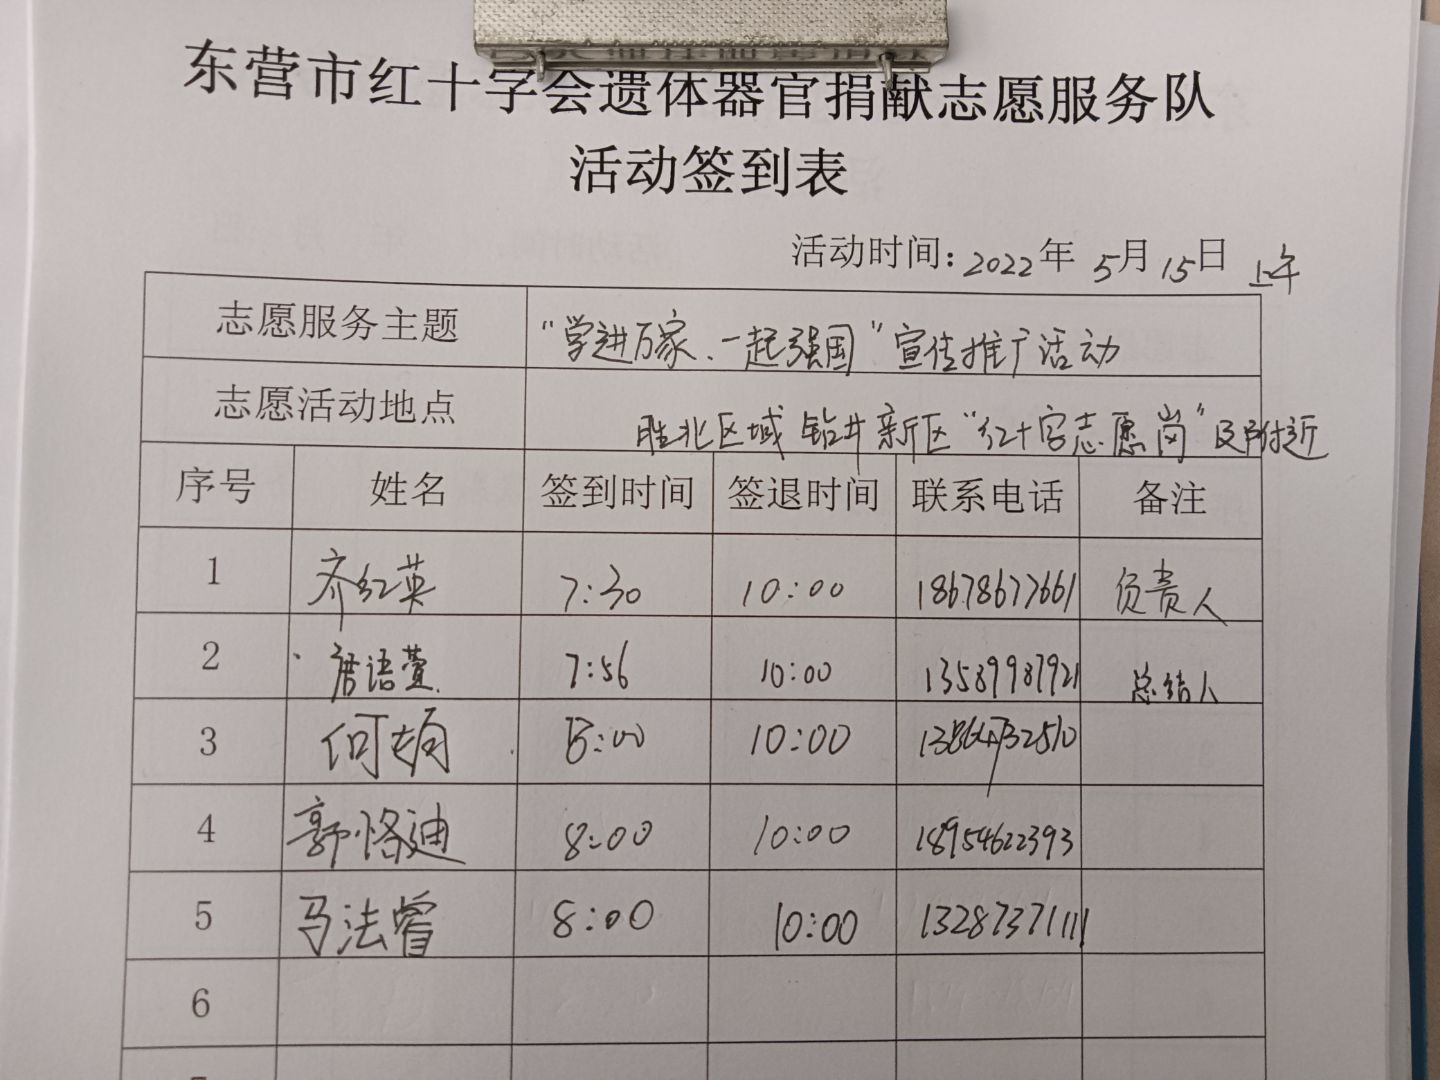 东营市红十字会遗体器官捐献志愿服务队
活动签到表
活动时间:2022年5月15日 上午
志愿服务主题 "学进万家、一起强国"宣传推广活动
志愿活动地点 胜北区域 钻井新区"红十字志愿岗"及附近
序号 姓名 签到时间 签退时间 联系电话 备注
1 齐红英 7:30 10:00 18678677661 负责人
2 唐语萱 7:56 10:00 13589987921 总结人
3 何 8:00 10:00
4 郭恪迪 8:00 10:00 18954622393
5 马法曾 8:00 10:00 13287371111
6